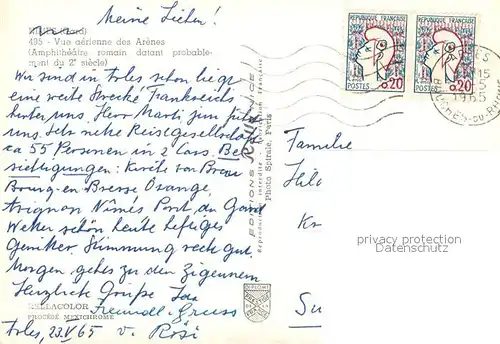 Meine Lieben!
NIMES (Gard)
435 - Vue aérienne des Arènes
(Amphithéâtre romain datant probable-
ment du 2e siècle)
Wir sind in Arles schon liegt
eine weite Strecke Frankreichs
hinter uns. Herr Marti zum führt
uns. Sehr nette Reisegesellschaft
ca 55 Personen in 2 Cars. Be-
sichtigungen: Kirche von Brou
Bourg-en Bresse Orange,
Avignon Nîmes Pont du Gard
Wetter schön heute heftiges
Gewitter. Stimmung recht gut.
Morgen gehts zu den Zigeunern
Herzliche Grüsse Ida
Freundl. Gruss
Arles, 23.V.65 v. Rösi
BELLACOLOR
PROCÉDÉ MEXICHROME
Reproduction interdite
Photo Spirale, Paris
DIPLOME
REPUBLIQUE FRANÇAISE
POSTES 0,20
REPUBLIQUE FRANÇAISE
POSTES 0,20
15
5
1965
BOUCHES-DU-RHONE
Familie
Kr
Su
privacy protection
VEREMARD COM